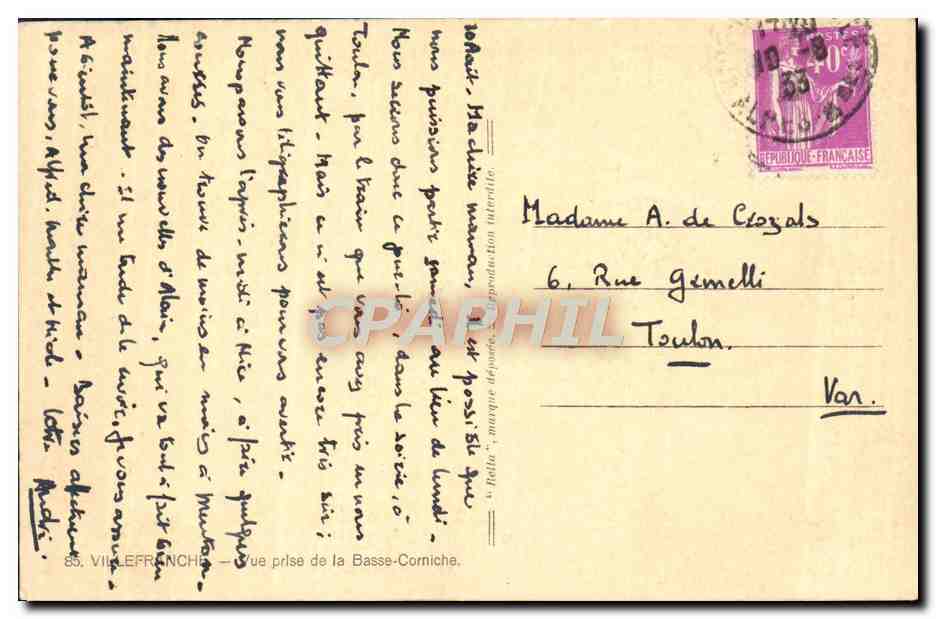 30 Août. Ma chère maman, Il est possible que
nous puissions partir samedi au lieu de lundi.
Nous serions donc ce jour-là, dans la soirée, à
Toulon, par le train que vous avez pris en nous
quittant. Mais ce n'est pas encore très sûr;
nous vous télégraphierons pour vous avertir.
Nous passons l'après-midi à Nice, à faire quelques
courses. On trouve de moins en moins à Menton.
Nous avons des nouvelles d'Alain, qui va tout à fait bien
maintenant. Il me tarde de le voir, je vous assure.
A bientôt, ma chère maman. Baisers affectueux
pour vous, et
Votre André.
85. VILLEFRANCHE — Vue prise de la Basse-Corniche.
" Rella ", marque déposée. Reproduction interdite
POSTES
40c
10-8
33
ALPES-M
REPUBLIQUE-FRANÇAISE
Madame A. de Crozals
6, Rue Gimelli
Toulon.
Var.
CPAPHIL